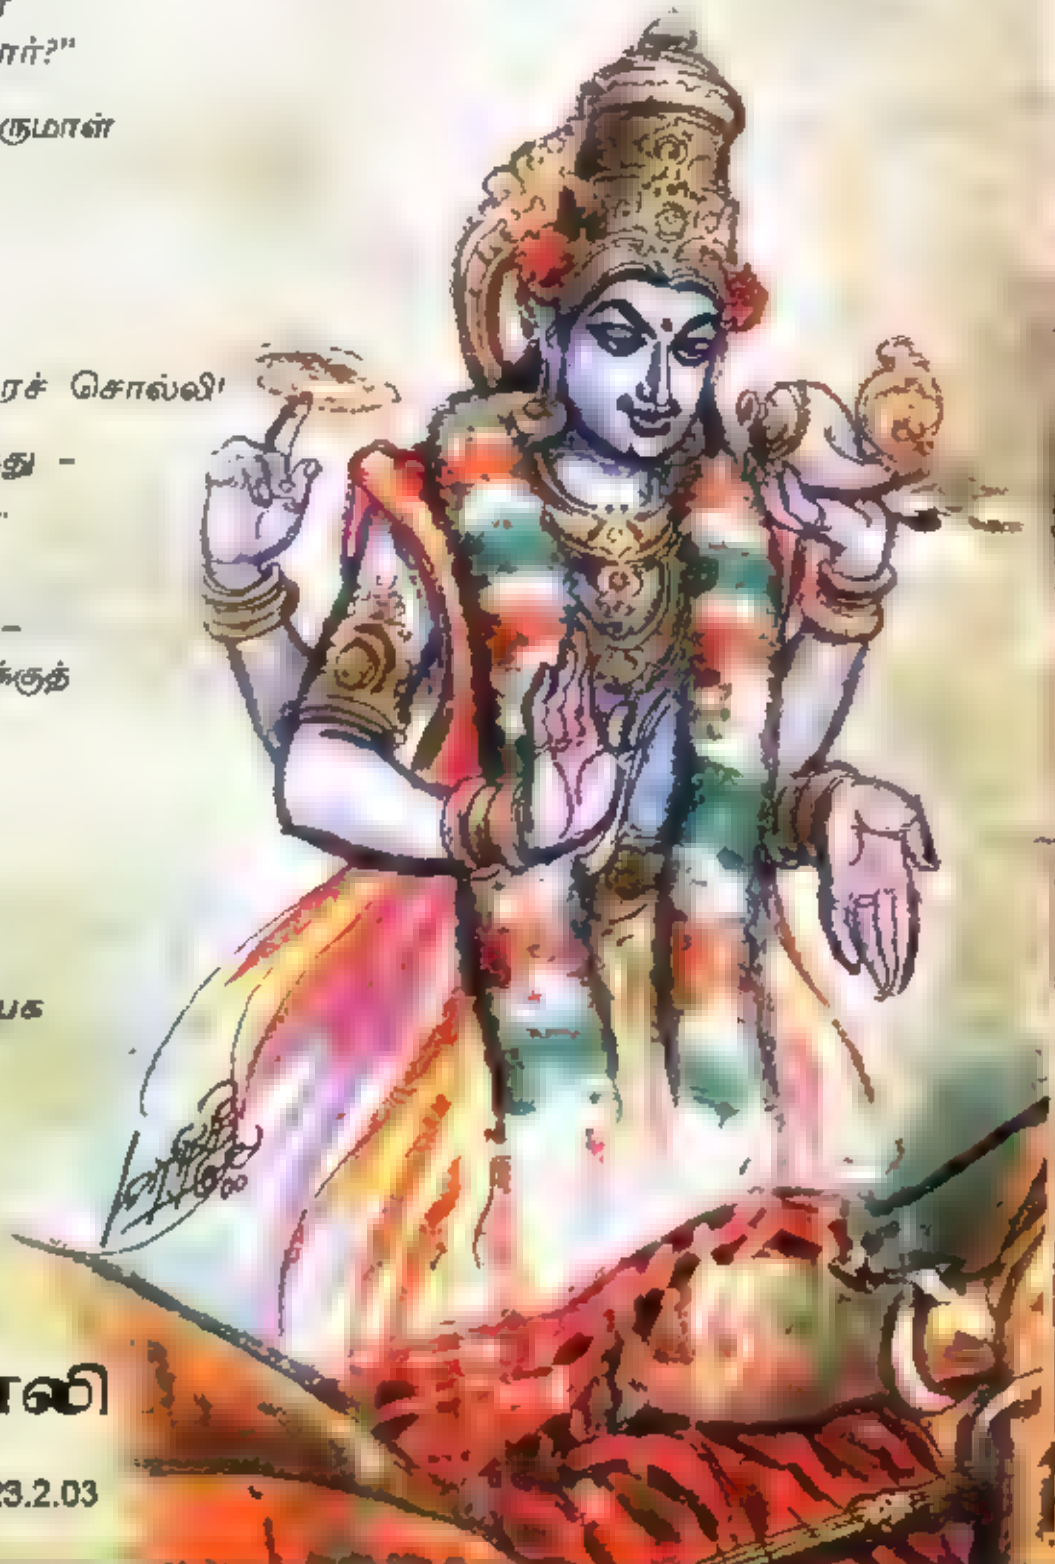 ார்?"
ருமாள்
ரச் சொல்லி'
து -
-
க்குத்
பக
ாலி
23.2.03